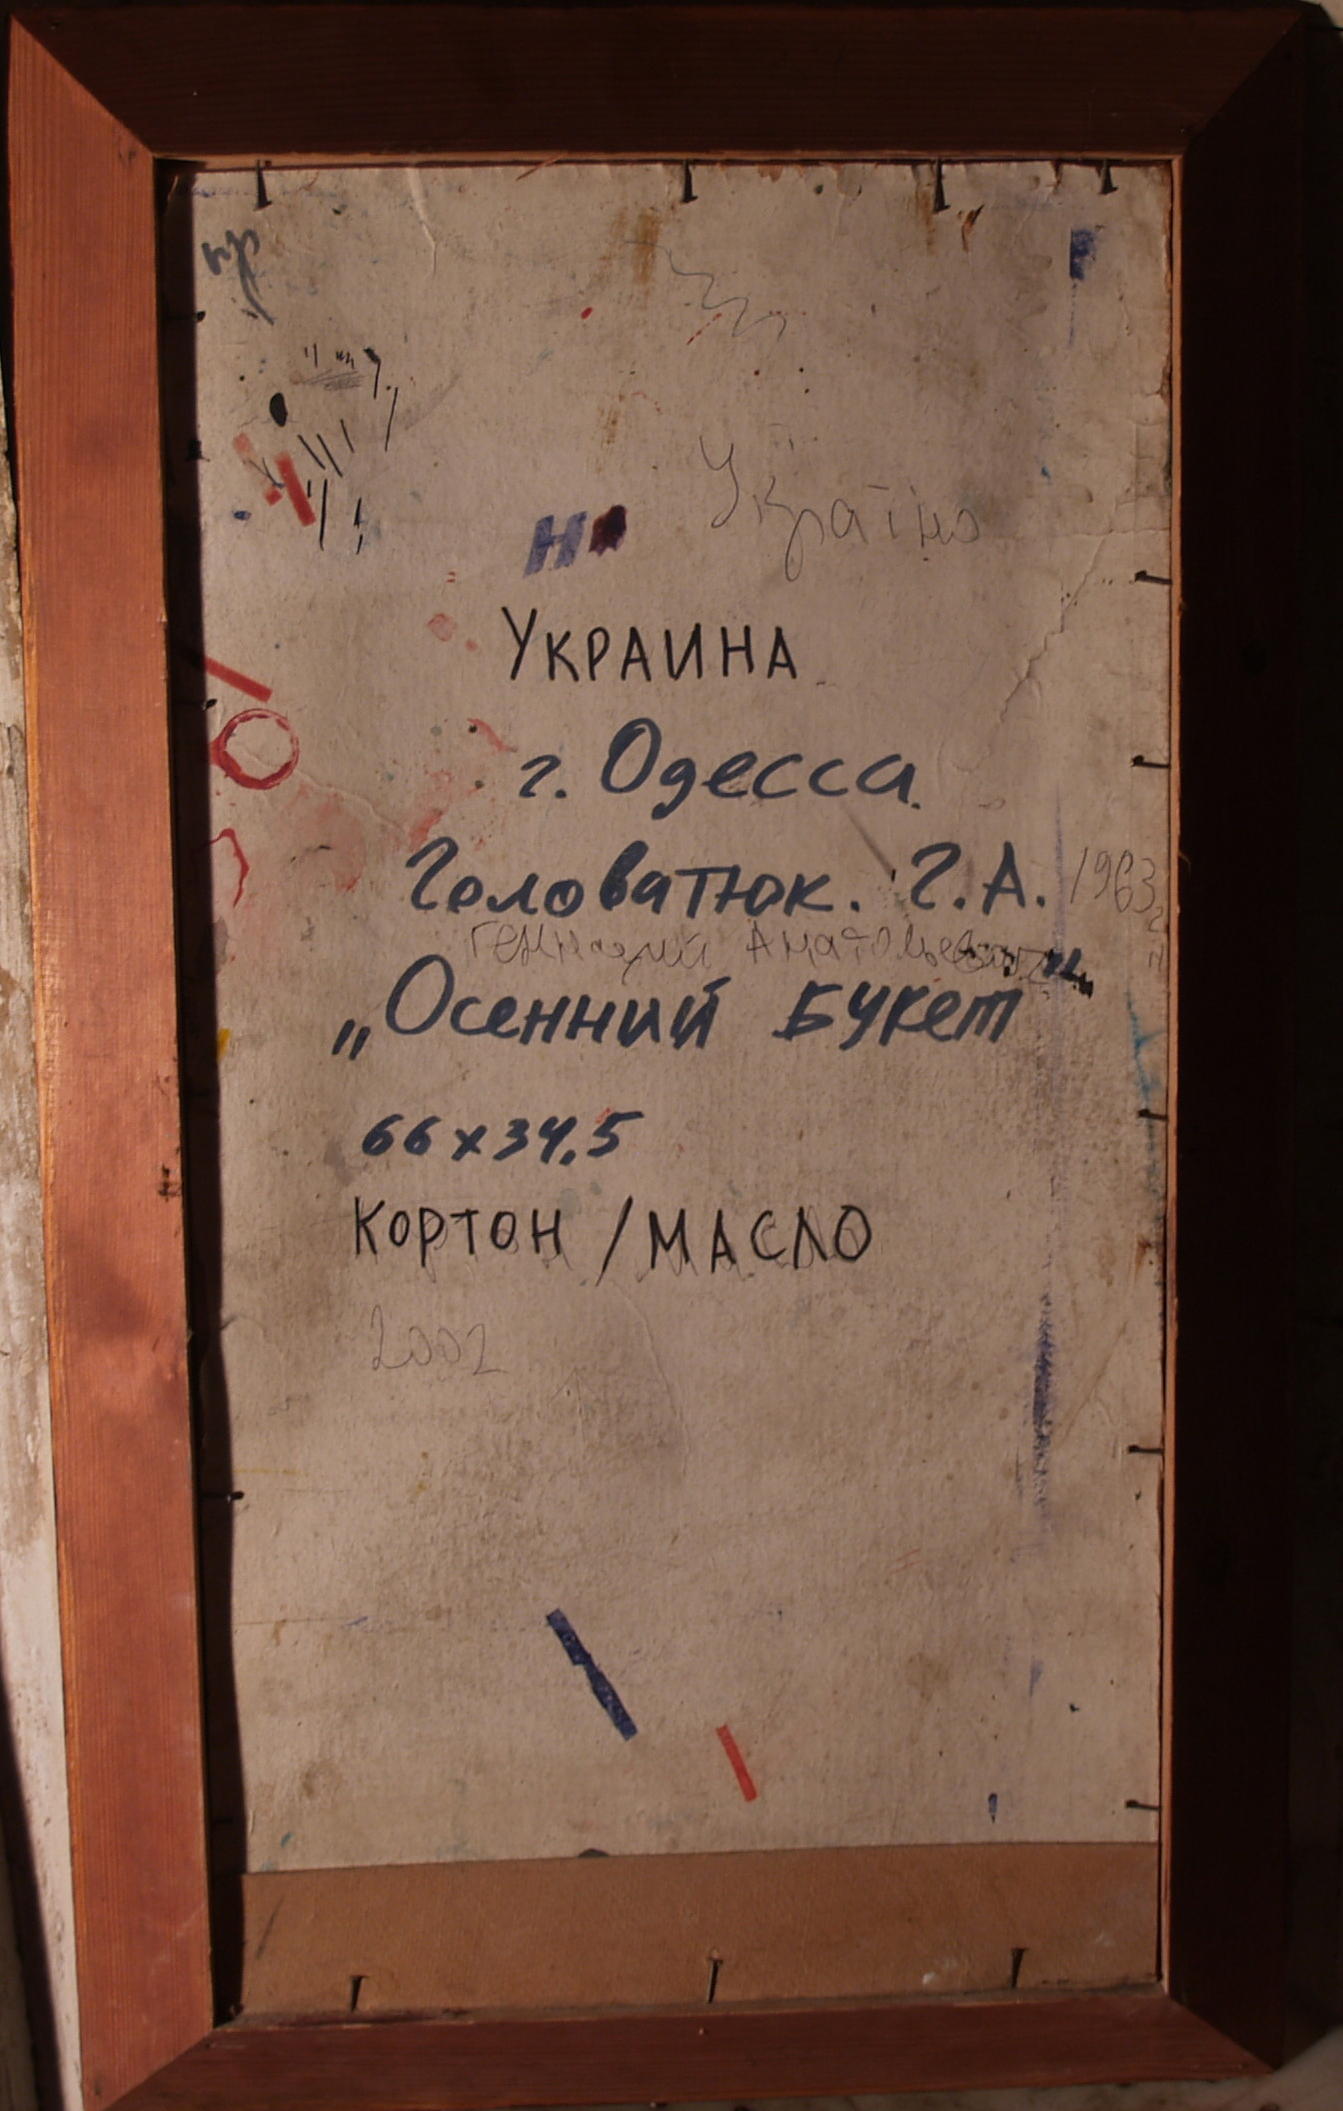 Україна
УКРАИНА
г. Одесса.
Головатюк. Г.А. 1963
Геннадий Анатольевич
„Осенний Букет"
66х34,5
КОРТОН / МАСЛО
2002